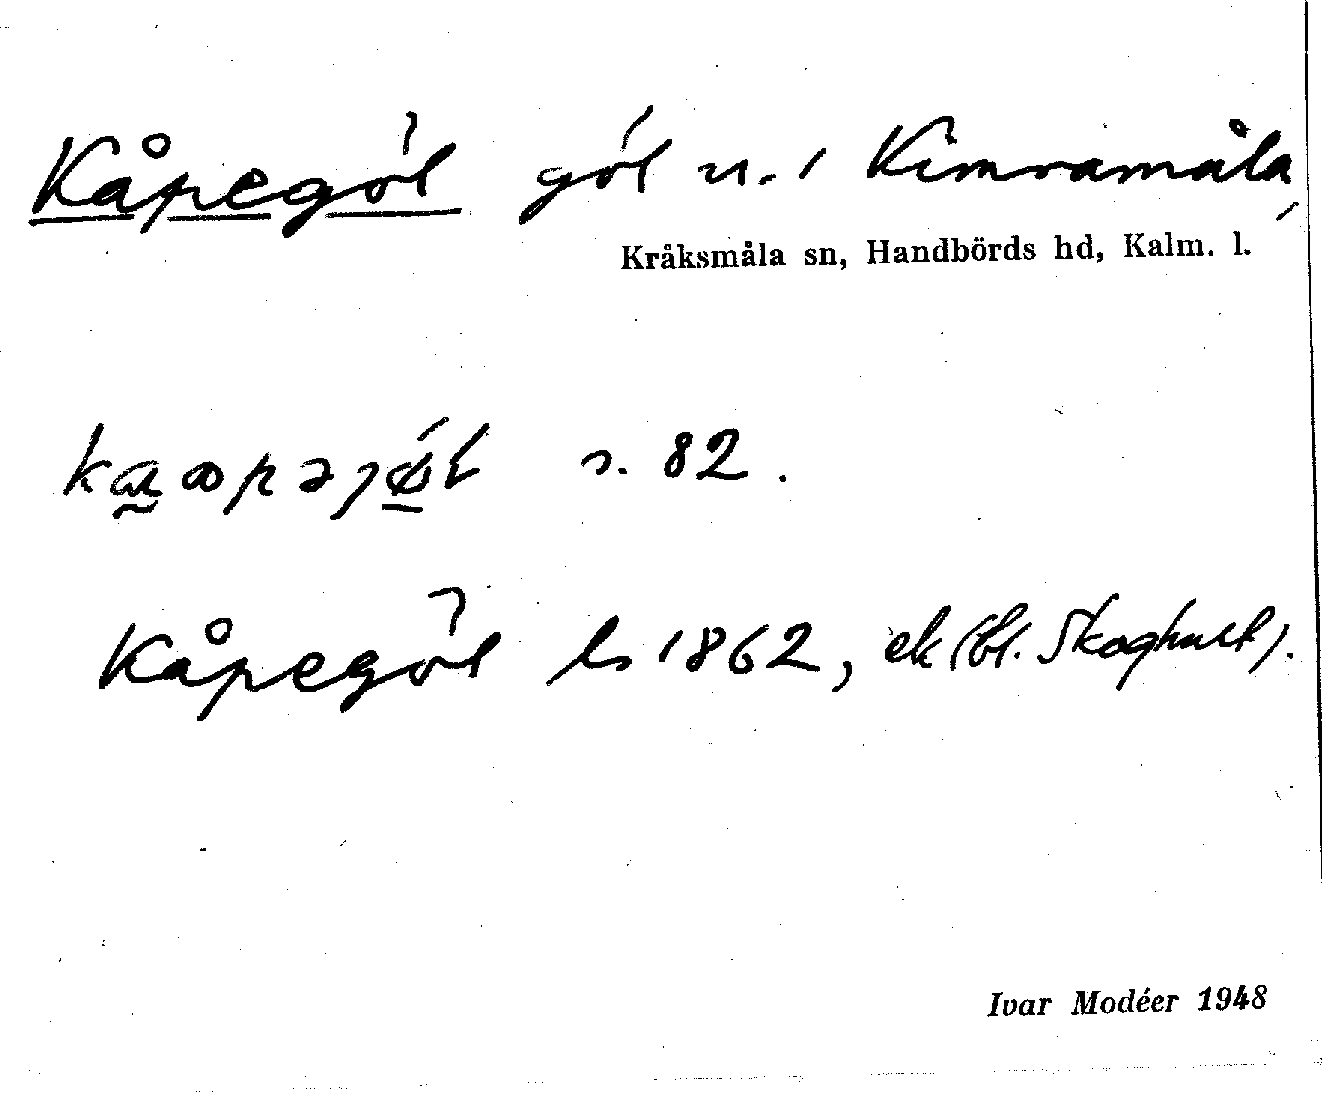 Kåpegöl göl n. i Kimramåla,
Kråksmåla sn, Handbörds hd, Kalm. l.
s. 82.
Kåpegöl ls 1862, ek (bl. Skoghult).
Ivar Modéer 1948